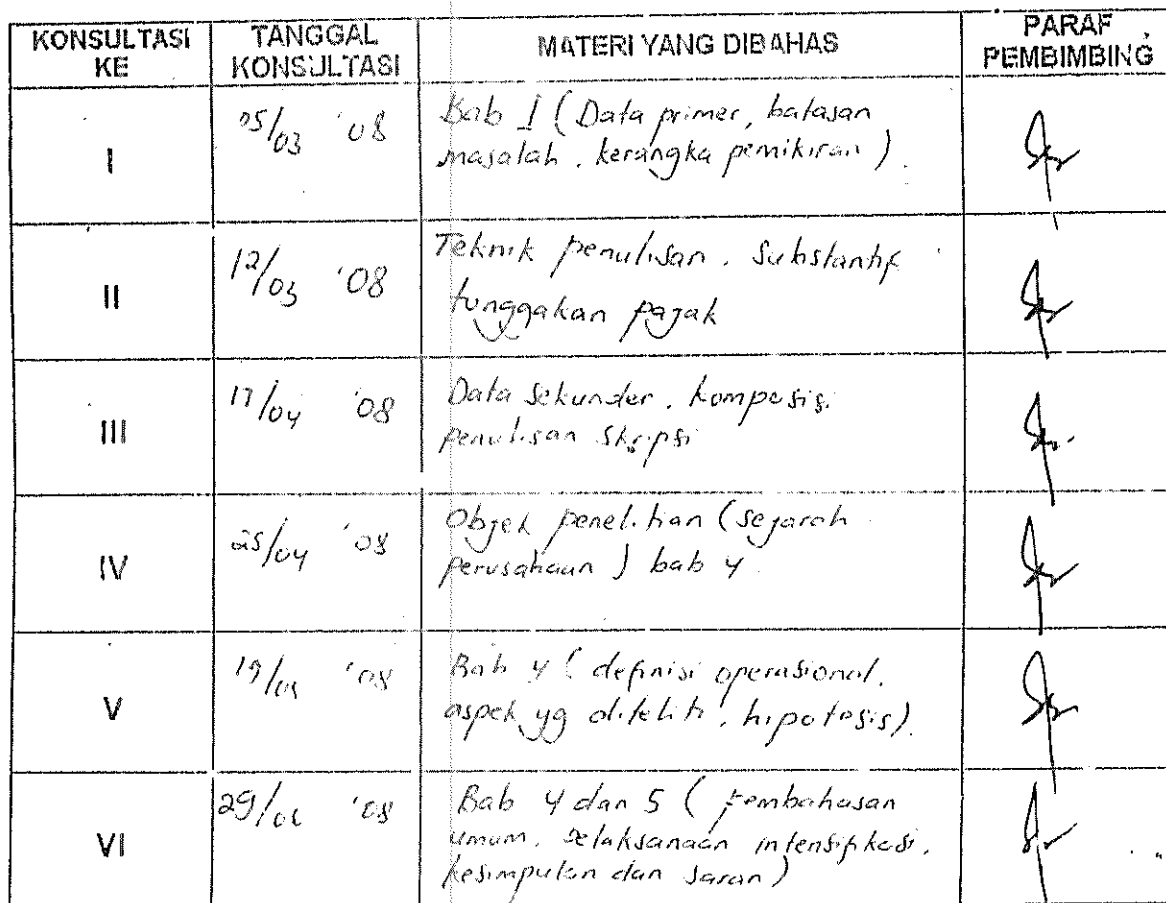 KONSULTASI KE
TANGGAL KONSULTASI
MATERI YANG DIBAHAS
PARAF PEMBIMBING
I
05/03 '08
Bab I (Data primer, batasan
masalah, kerangka pemikiran).
II
12/03 '08
Teknik penulisan, Substantif
tunggakan pajak
III
17/04 '08
Data Sekunder, komposisi
penulisan Skripsi
IV
25/04 '08
Objek penelitian (sejarah
perusahaan) bab 4.
V
'08
Bab 4 (definisi operasional,
aspek yg diteliti, hipotesis).
VI
'08
Bab 4 dan 5 (pembahasan
umum, pelaksanaan intensifikasi,
kesimpulan dan saran)